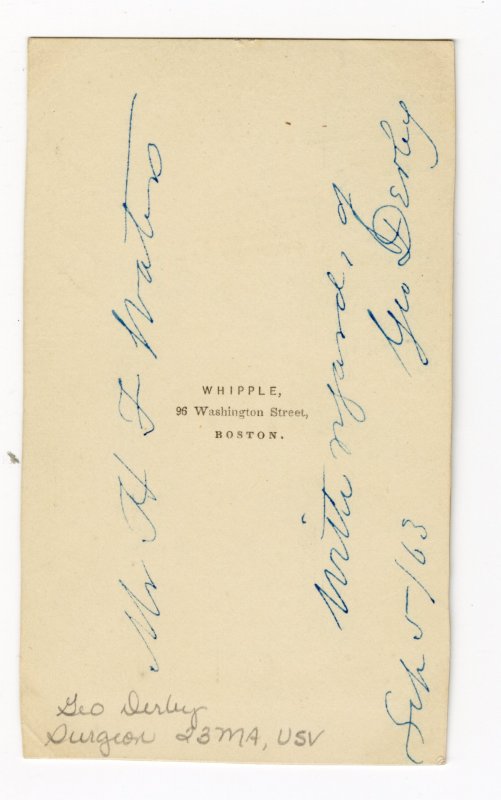 Mr H F Waters
With regards of
Geo Derby
Feb 5/63
WHIPPLE,
96 Washington Street,
BOSTON.
Geo Derby
Surgeon 23MA, USV